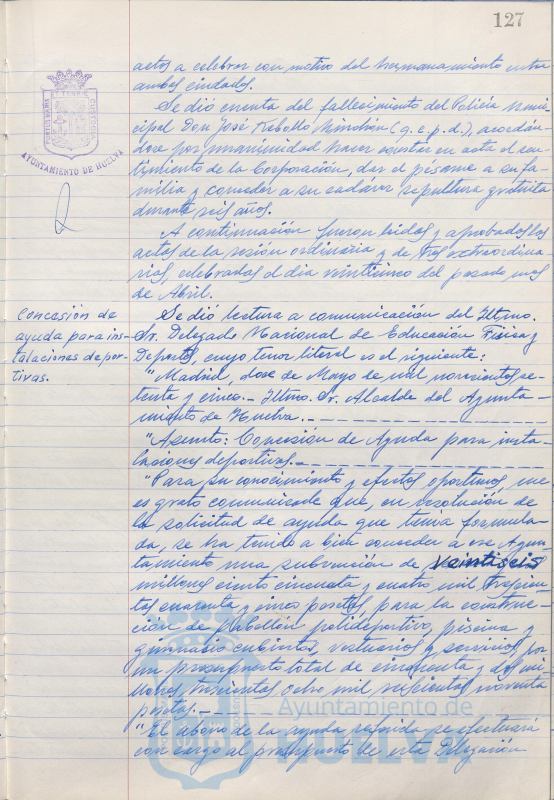 127
actos a celebrar con motivo del hermanamiento entre
ambas ciudades.
Se dió cuenta del fallecimiento del Policía muni-
cipal Don José Rebollo Minchón (q.e.p.d.), acordán-
dose por unanimidad hacer constar en acta el sen-
timiento de la Corporación, dar el pésame a su fa-
milia y conceder a su cadáver sepultura gratuita
durante seis años.
A continuación fueron leidas y aprobadas las
actas de la sesión ordinaria y de tres extraordina-
rias, celebradas el dia veinticinco del pasado mes
de Abril.
Se dió lectura a comunicación del Iltmo.
Sr. Delegado Nacional de Educación Física y
Deportes, cuyo tenor literal es el siguiente:
"Madrid, doce de Mayo de mil novecientos se-
tenta y cinco.- Iltmo. Sr. Alcalde del Ayunta-
miento de Huelva.-
"Asunto: Concesión de Ayuda para insta-
laciones deportivas.-
"Para su conocimiento y efectos oportunos, me
es grato comunicarle que, en resolución de
la solicitud de ayuda que tenia formula-
da, se ha tenido a bien conceder a ese Ayun-
tamiento una subvención de veintiseis
millones ciento cincuenta y cuatro mil trescien-
tas cuarenta y cinco pesetas, para la construc-
ción de Pabellón polideportivo, piscina y
gimnasio cubiertos, vestuarios y servicios, por
un presupuesto total de cincuenta y dos mi-
llones trescientas ocho mil seiscientas noventa
pesetas.-
"El abono de la ayuda referida se efectuará
con cargo al presupuesto de esta Delegación
Concesión de
ayuda para ins-
talaciones depor-
tivas.
AYUNTAMIENTO DE HUELVA
Ayuntamiento de
HUELVA